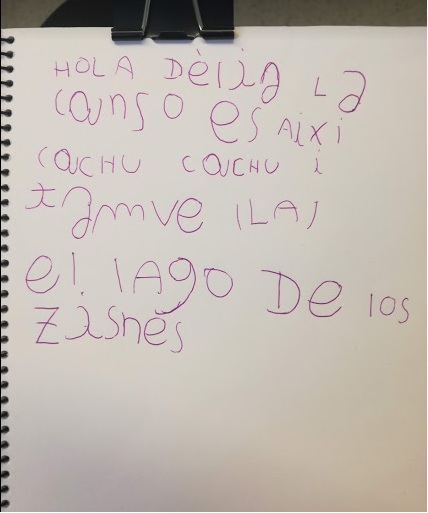 HOLA Dèlia La
canso es AiXi
cacHU cacHU i
tamve (LA)
el lAgo De los
zisnes